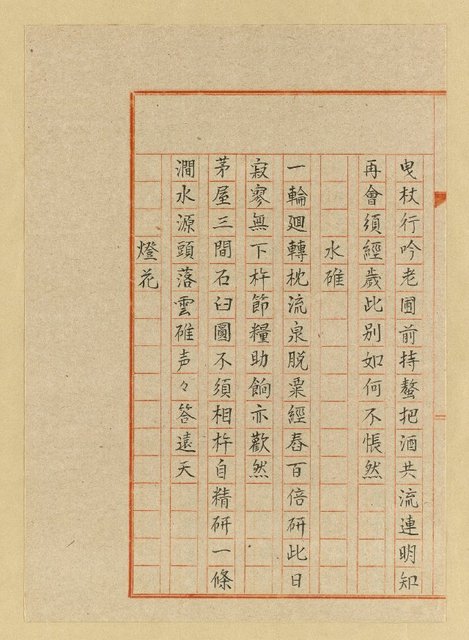 曳杖行吟老圃前持螯把酒共流連明知
再會須經歲此別如何不悵然
水碓
一輪廻轉枕流泉脱粟經舂百倍研此日
寂寥無下杵節糧助餉亦歡然
茅屋三間石臼圓不須相杵自精研一條
澗水源頭落雲碓声々答遠天
燈花